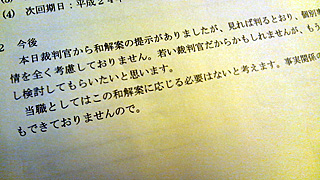 (4) 次回期日:平成2年
2 今後
本日裁判官から和解案の提示がありましたが、見れば判るとおり、個別
情を全く考慮しておりません。若い裁判官だからかもしれませんが、もう
し検討してもらいたいと思います。
当職としてはこの和解案に応じる必要はないと考えます。事実関係の
もできておりませんので。